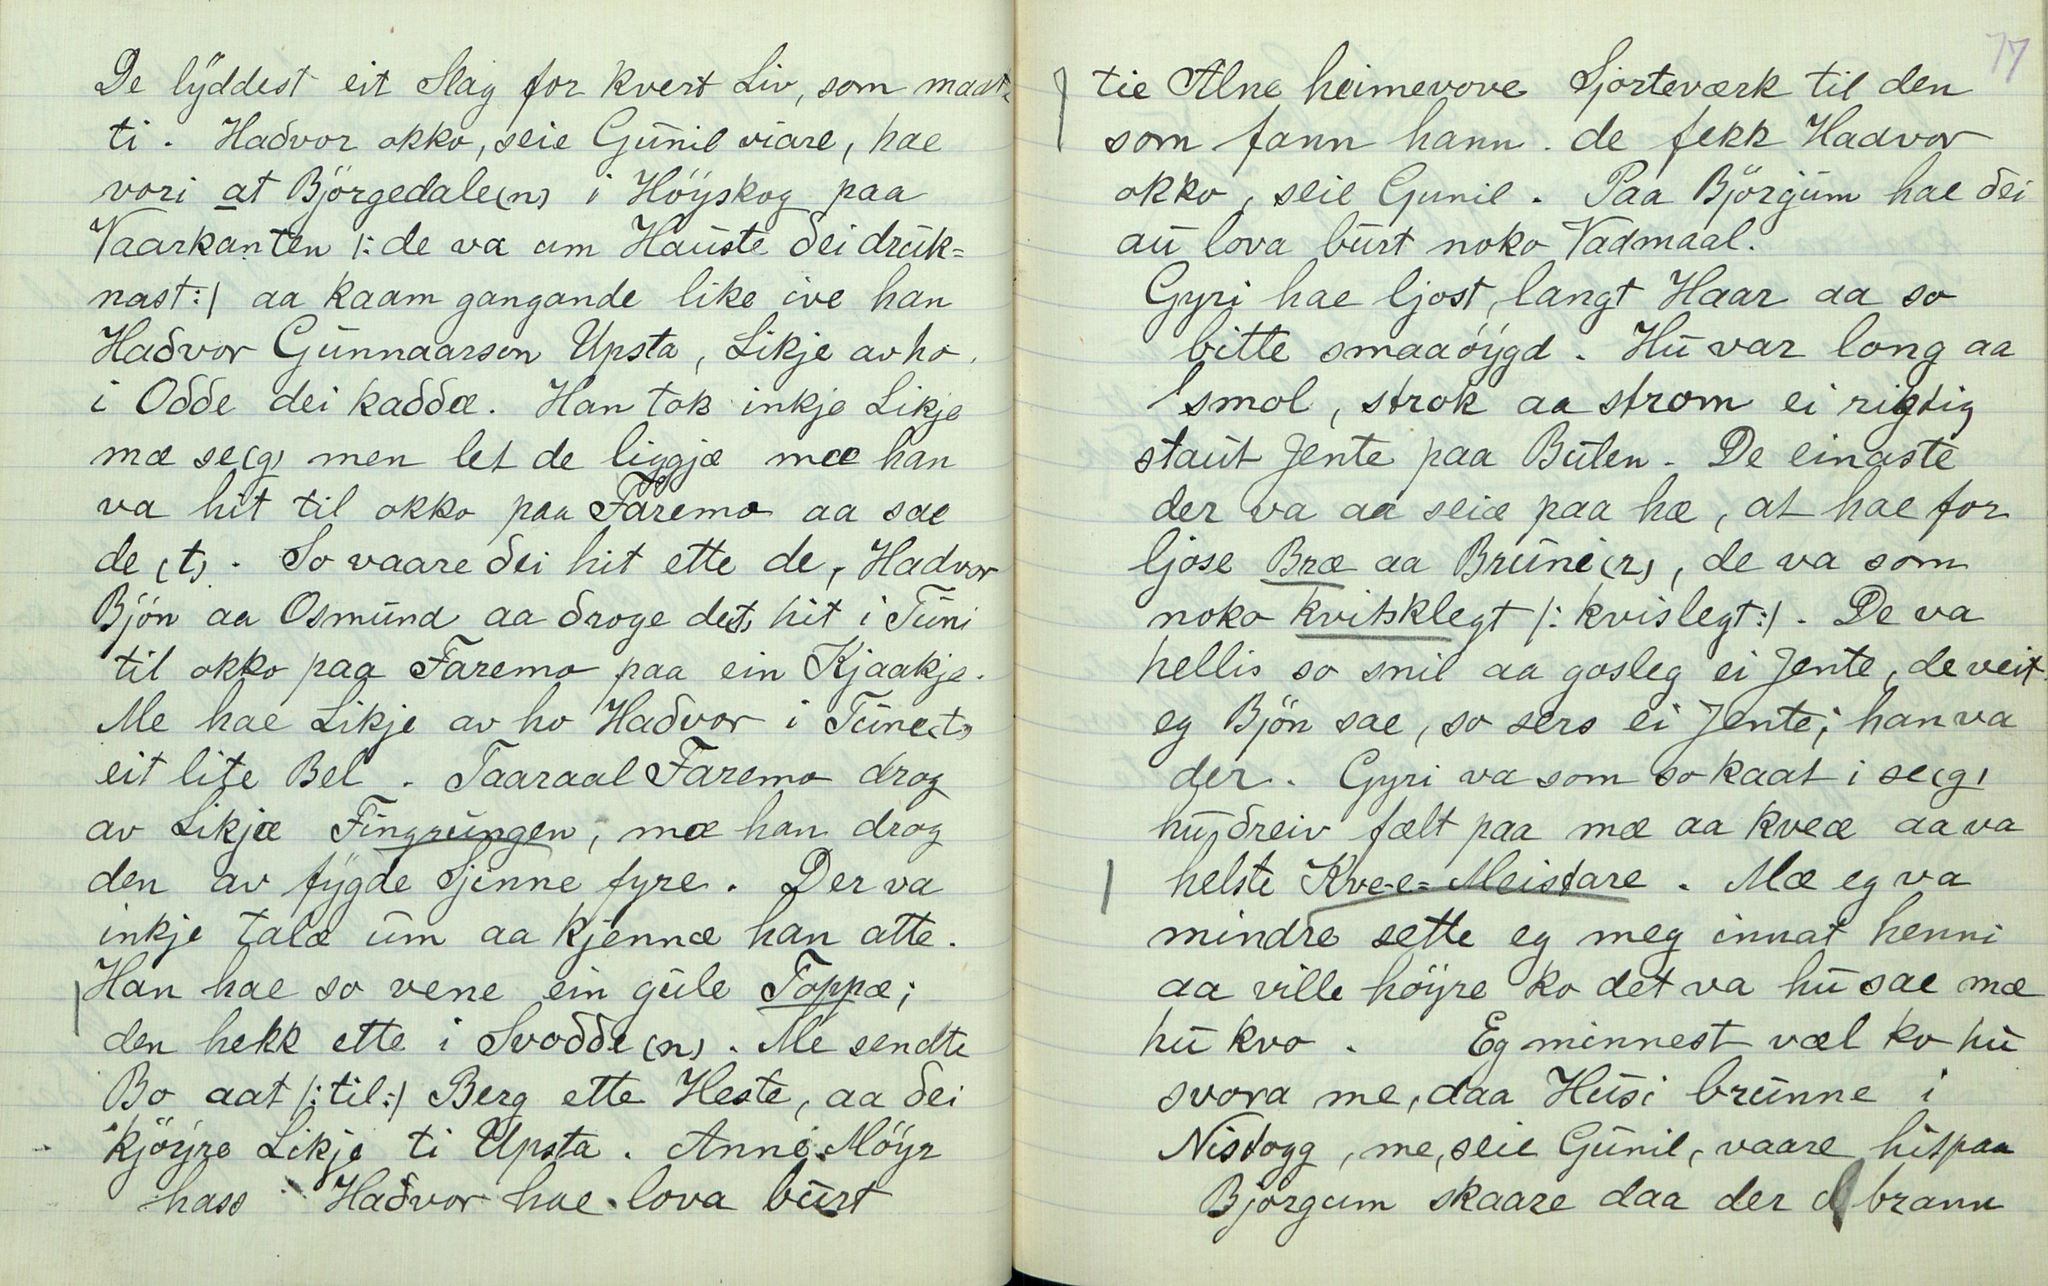 De lÿddest eit Slag for kvert Liv, som maat-
ti. Haðvor okko, seie Gunil viare, hae
vori at Björgedale(n) i Höÿskog paa
Vaarkanten |: de va um Hauste ðei druk=
nast :| aa kaam gangande like ive han
Haðvor Gunnaarson Upsta, Likje av ho
i Oððe dei kaððæ. Han tok inkje Likje
mæ se(g) men let de liggjæ mæ han
va hit til okko paa Faremo aa sae
de(t). So vaare ðei hit ette de, Hadvor
Bjön aa Osmund aa ðroge det hit i Tuni
til okko paa Faremo paa ein Kjaakje.
Me hae Likje av ho Haðvor i Tune(t)
eit lite Bel. Taaraal Faremo drog
av Likjæ Fingrungen, mæ han drog
den av fÿgde Sjinne fyre. Der va
inkje talæ um aa kjennæ han atte.
Han hae so vene ein gule Toppæ;
den hekk ette i Svoððe(n). Me sendte
Bo aat |: til :| Berg ette Heste, aa ðei
kjöÿre Likje ti Upsta. Anne Möÿr
hass Haðvor hae lova burt
77
tie Alne heimevove Sjorteværk til den
som fann hann. de fekk Hadvor
okko, seie Gunil. Paa Björgum hae ðei
au lova burt noko Vadmaal.
Gyri hae ljost, langt Haar aa so
bitte smaaöÿgd. Hu var long aa
smol, strok aa strom ei rigtig
staut Jente paa Bulen. De einaste
der va aa seiæ paa hæ, at hae for
ljose Bræ aa Bruni(r), de va som
noko kvitsklegt |: kvislegt :|. De va
hellis so snil aa gosleg ei Jente, de veit
eg Bjön sae, so sers ei Jente; han va
der. Gyri va som so kaat i se(g)
hu ðreiv fælt paa mæ aa kveæ aa va
helste Kve-e=Meistare. Mæ eg va
mindre sette eg meg innat henni
aa ville höÿre ko det va hu sae mæ
hu kvo. Eg minnest væl ko hu
svora me, daa Husi brunne i
Nistogg, me, seie Gunil, vaare hitpaa
Bjorgum skaare daa der brann